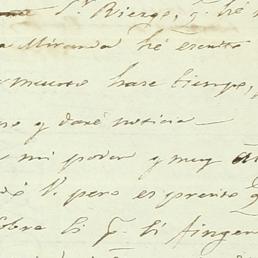 Sr. Rierge, q. hé
a Miranda hé escrito
muerto hace tiempo,
y daré noticia —
mi poder y muy
V. pero es preciso q
sobre si q. si fingen